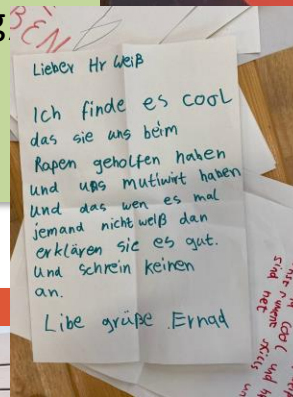 g
BEN
Lieber Hr Weiß
Ich finde es cool
das sie uns beim
Rapen geholfen haben
und uns mutiwirt haben
und das wen es mal
jemand nicht weiß dan
erklären sie es gut.
und schrein keinen
an.
Libe grüße Ernad
cool und
sind net